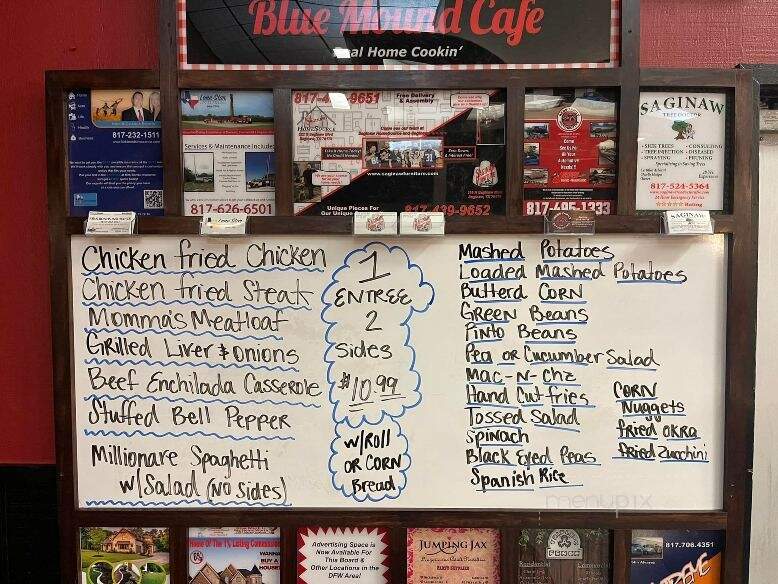 Blue Mound Cafe
Real Home Cookin'
817-232-1511
Lone Star
Services & Maintenance Include:
817-626-6501
817-439-9651
Free Delivery
& Assembly
www.saginawfurniture.com
Unique Pieces For
817-439-9652
817-495-1333
SAGINAW
TREE DOCTOR
- SICK TREES
- CONSULTING
- TREE INJECTION
- DISEASED
- SPRAYING
- PRUNING
817-524-5364
Chicken fried Chicken
Chicken fried Steak
Momma's Meatloaf
Grilled Liver & onions
Beef Enchilada Casserole
Stuffed Bell Pepper
Millionare Spaghetti
w/Salad (No sides)
1
ENTREE
2
sides
$10.99
w/Roll
OR CORN
Bread
Mashed Potatoes
Loaded Mashed Potatoes
Butterd CORN
Green Beans
Pinto Beans
Pea or Cucumber Salad
Mac-N-Chz
Hand Cut fries
Tossed Salad
Spinach
Black Eyed Peas
Spanish Rice
CORN
Nuggets
fried OKRA
Fried Zucchini
menupix
Home Of The 1% Listing Commission
WANNA
BUY A
HOUSE
Advertising Space is
Now Available For
This Board &
Other Locations in the
DFW Area!
JUMPING JAX
PARTY SUPPLIES
817.706.4351